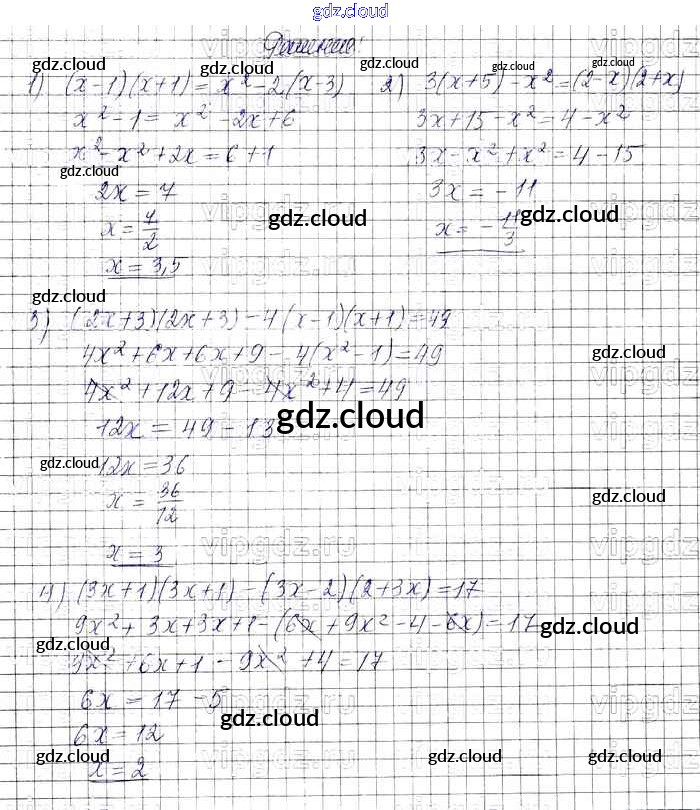 gdz.cloud
gdz.cloud
Решение!
gdz.cloud
gdz.cloud
gdz.cloud
1) (x-1)(x+1) = x² - 2(x-3)
x² - 1 = x² - 2x + 6
x² - x² + 2x = 6 + 1
gdz.cloud
2x = 7
x = 7/2
x = 3,5
gdz.cloud
2) 3(x+5) - x² = (2-x)(2+x)
3x + 15 - x² = 4 - x²
3x - x² + x² = 4 - 15
3x = -11
x = - 11/3
gdz.cloud
gdz.cloud
3) (2x+3)(2x+3) - 4(x-1)(x+1) = 49
4x² + 6x + 6x + 9 - 4(x² - 1) = 49
gdz.cloud
4x² + 12x + 9 - 4x² + 4 = 49
12x = 49 - 13
gdz.cloud
gdz.cloud
12x = 36
x = 36/12
gdz.cloud
x = 3
4) (3x+1)(3x+1) - (3x-2)(2+3x) = 17
9x² + 3x + 3x + 1 - (6x + 9x² - 4 - 6x) = 17
gdz.cloud
gdz.cloud
9x² + 6x + 1 - 9x² + 4 = 17
6x = 17 - 5
gdz.cloud
6x = 12
gdz.cloud
gdz.cloud
gdz.cloud
x = 2
vipgdz.ru